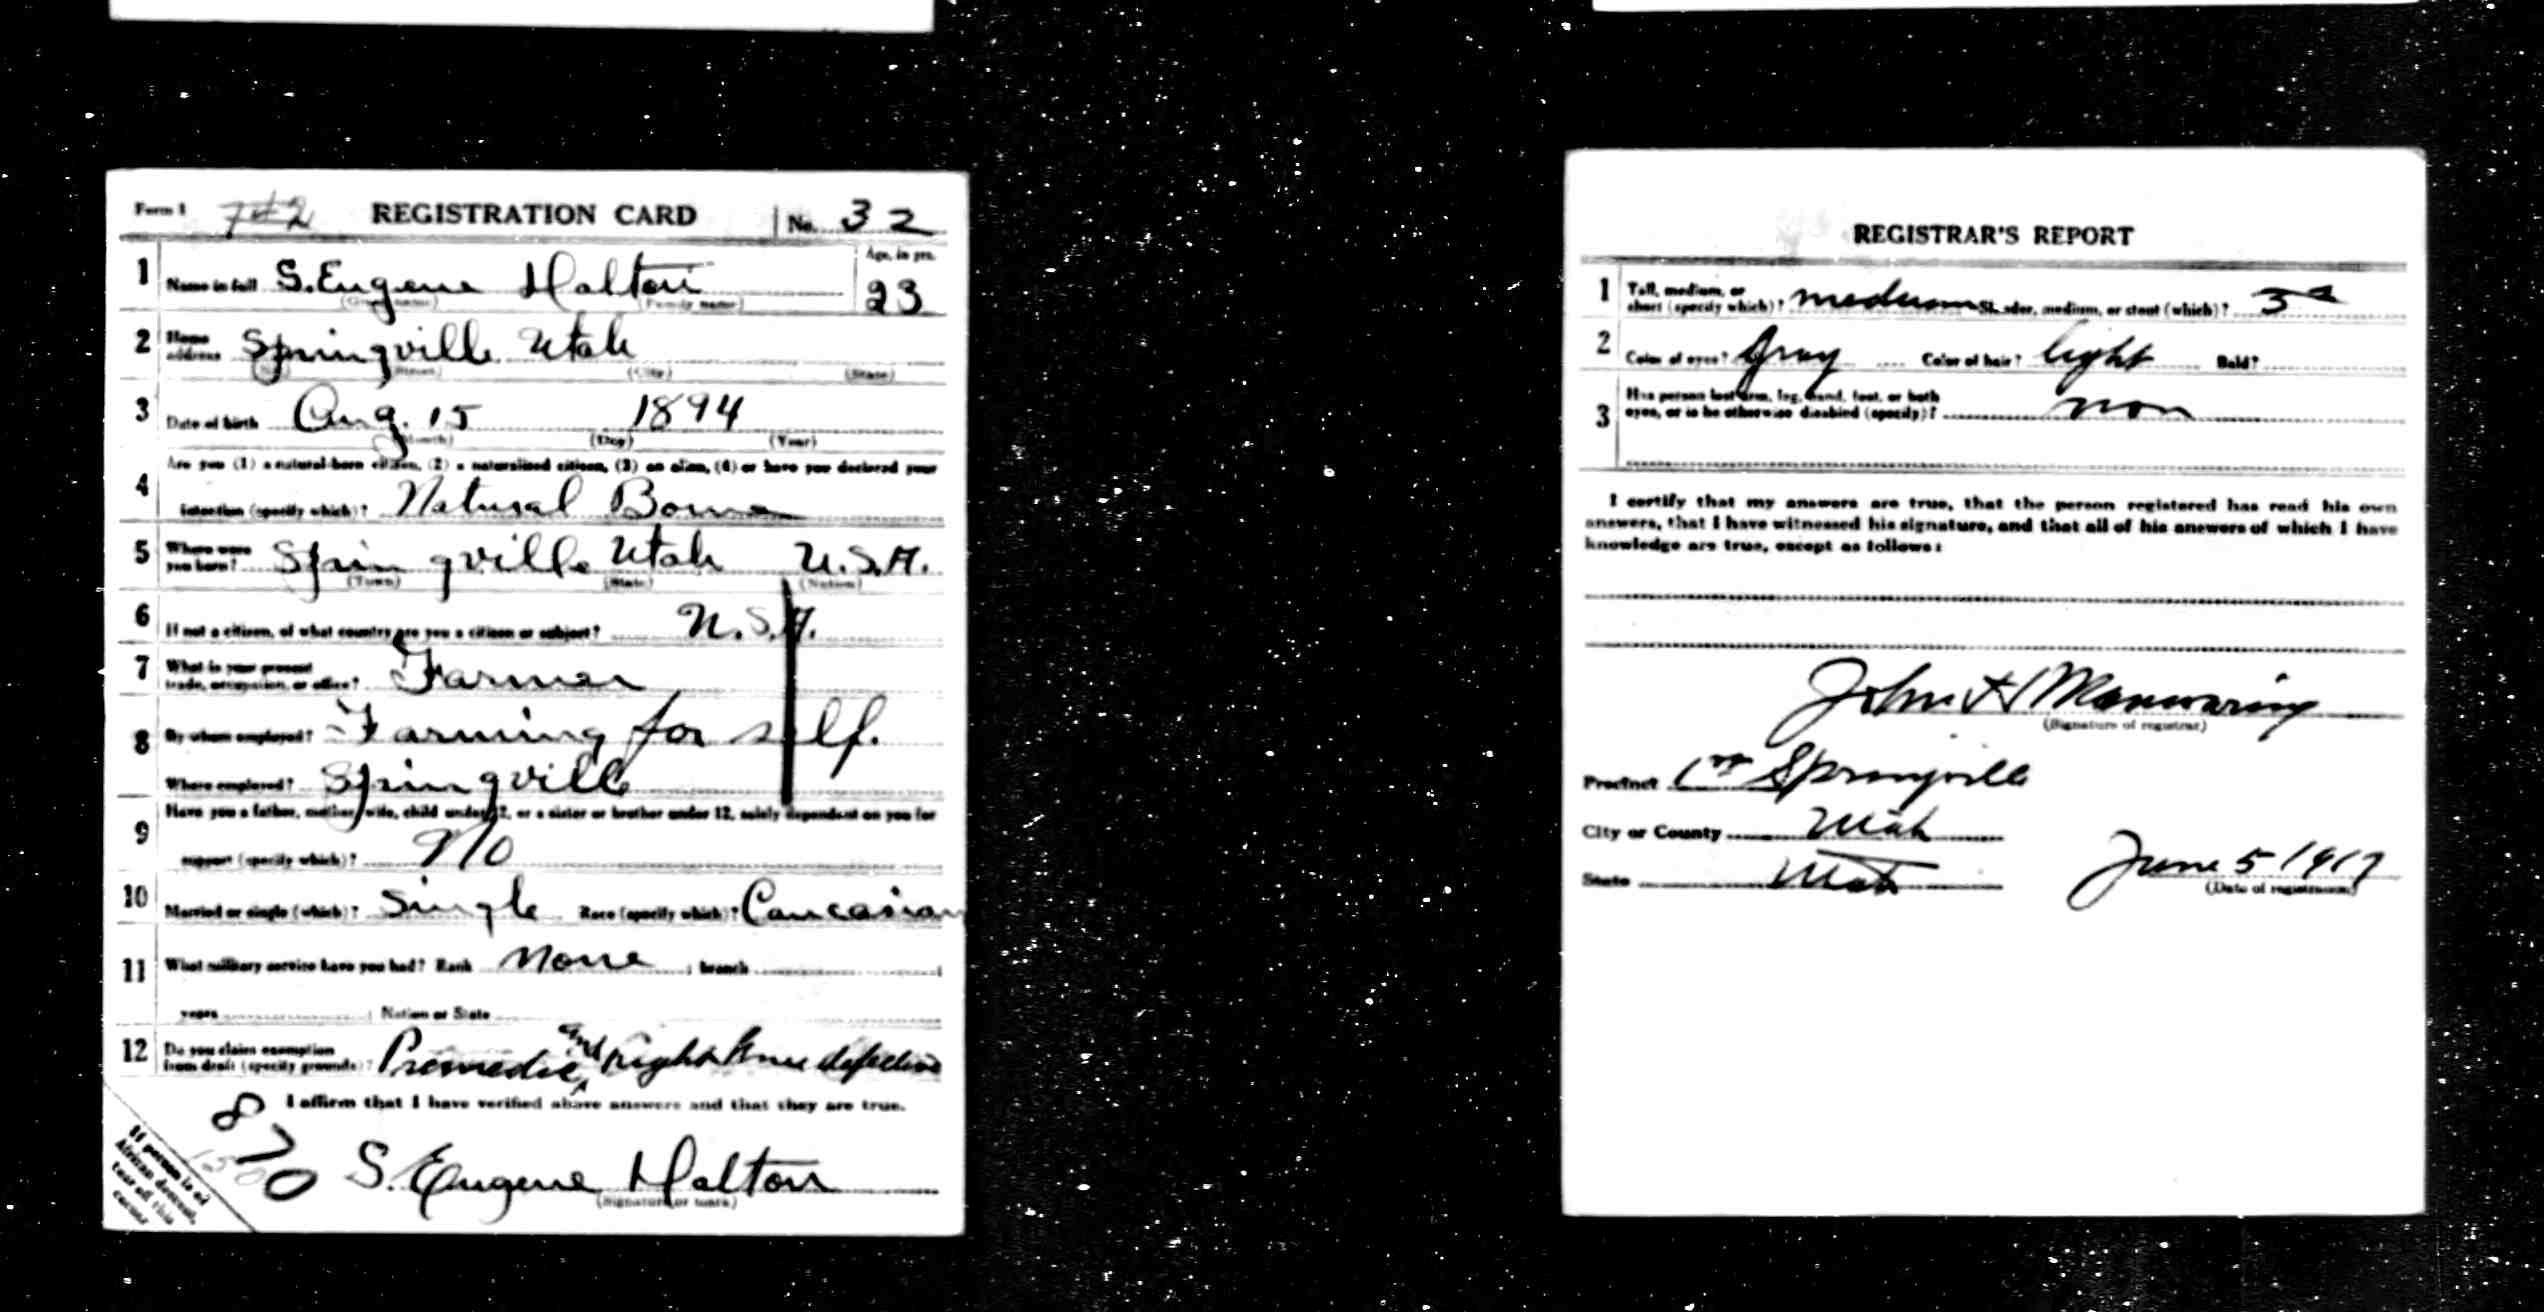 Form 1 742 REGISTRATION CARD No. 32
1 Name in full S. Eugene Halton Age, in yrs. 23
(Given name) (Family name)
2 Home address Springville Utah
(No.) (Street) (City) (State)
3 Date of birth Aug. 15 1894
(Month) (Day) (Year)
Are you (1) a natural-born citizen, (2) a naturalized citizen, (3) an alien, (4) or have you declared your
4 intention (specify which)? Natural Borne
5 Where were you born? Springville Utah U.S.A.
(Town) (State) (Nation)
6 If not a citizen, of what country are you a citizen or subject? U.S.A.
7 What is your present trade, occupation, or office? Farmer
8 By whom employed? Farming for self.
Where employed? Springville
Have you a father, mother, wife, child under 12, or a sister or brother under 12, solely dependent on you for
9 support (specify which)? No
10 Married or single (which)? Single Race (specify which)? Caucasian
11 What military service have you had? Rank None ; branch ;
years ; Nation or State
12 Do you claim exemption from draft (specify grounds)? Premedic and right knee defective
I affirm that I have verified above answers and that they are true.
870
S. Eugene Halton
(Signature or mark)
If person is of
African descent,
tear off this
corner
REGISTRAR'S REPORT
1 Tall, medium, or short (specify which)? medium Slender, medium, or stout (which)?
2 Color of eyes? Gray Color of hair? light Bald?
Has person lost arm, leg, hand, foot, or both
3 eyes, or is he otherwise disabled (specify)? non
I certify that my answers are true, that the person registered has read his own
answers, that I have witnessed his signature, and that all of his answers of which I have
knowledge are true, except as follows:
John H Manwaring
(Signature of registrar)
Precinct Springville
City or County Utah
State Utah June 5 1917
(Date of registration)